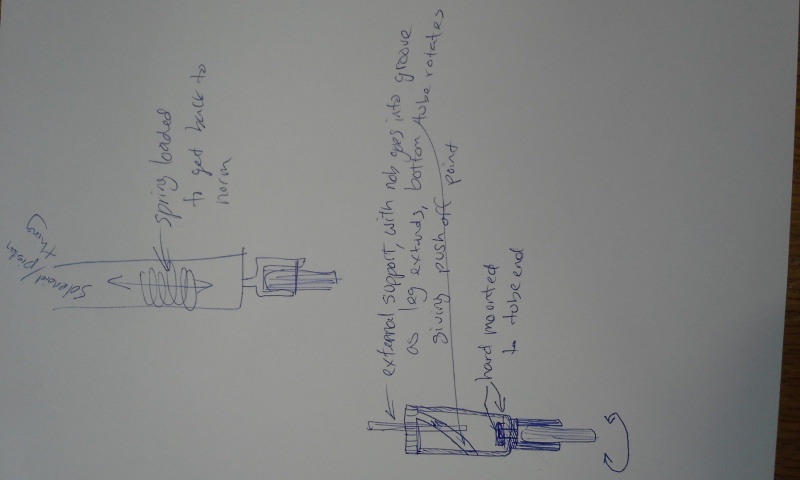 Solenoid/piston
thing
spring loaded
to get back to
norm
external support, with nob goes into groove
as leg extends, bottom tube rotates
giving push off point
hard mounted
to tube end